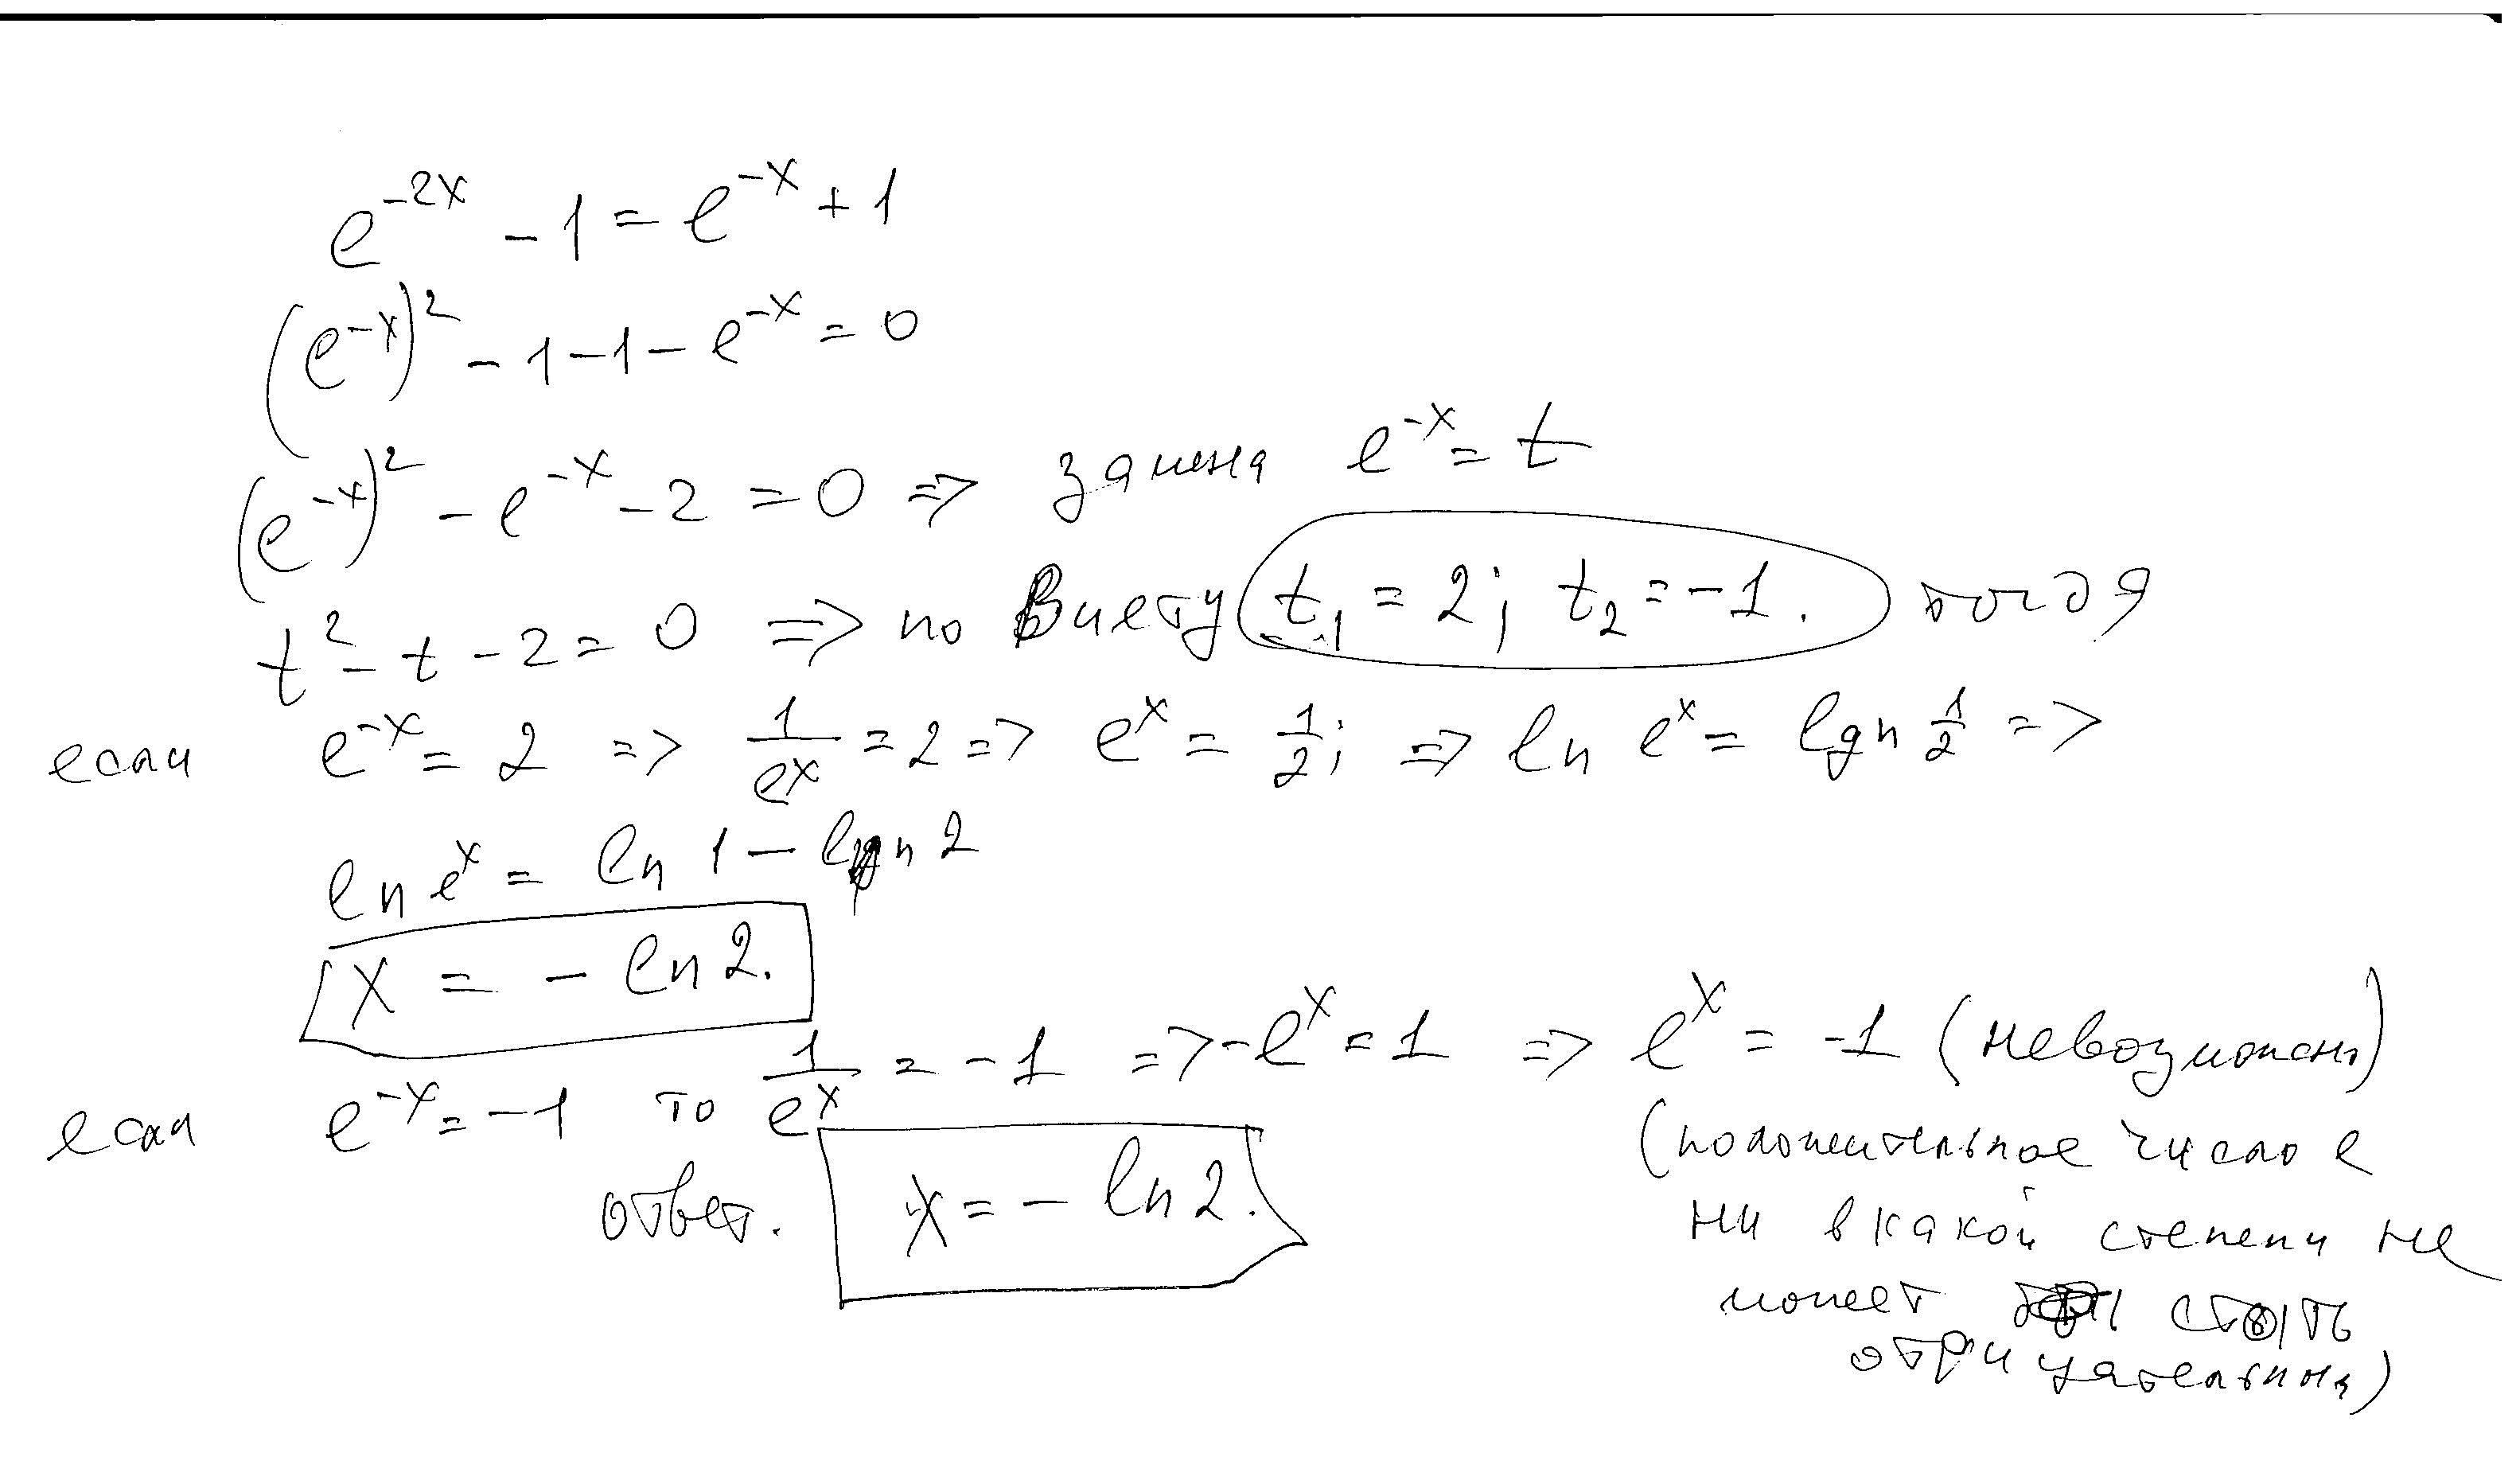 e^{-2x} - 1 = e^{-x} + 1
(e^{-x})^2 - 1 - 1 - e^{-x} = 0
(e^{-x})^2 - e^{-x} - 2 = 0 => замена e^{-x} = t
t^2 - t - 2 = 0 => по Виету t_1 = 2; t_2 = -1. тогда
если e^{-x} = 2 => \frac{1}{e^x} = 2 => e^x = \frac{1}{2}; => ln e^x = lgn \frac{1}{2} =>
ln e^x = ln 1 - ln 2
x = - ln 2.
если e^{-x} = -1 то \frac{1}{e^x} = -1 => -e^x = 1 => e^x = -1 (невозможно)
(положительное число e
ни в какой степени не
может стать
отрицательным)
ответ. x = - ln 2.